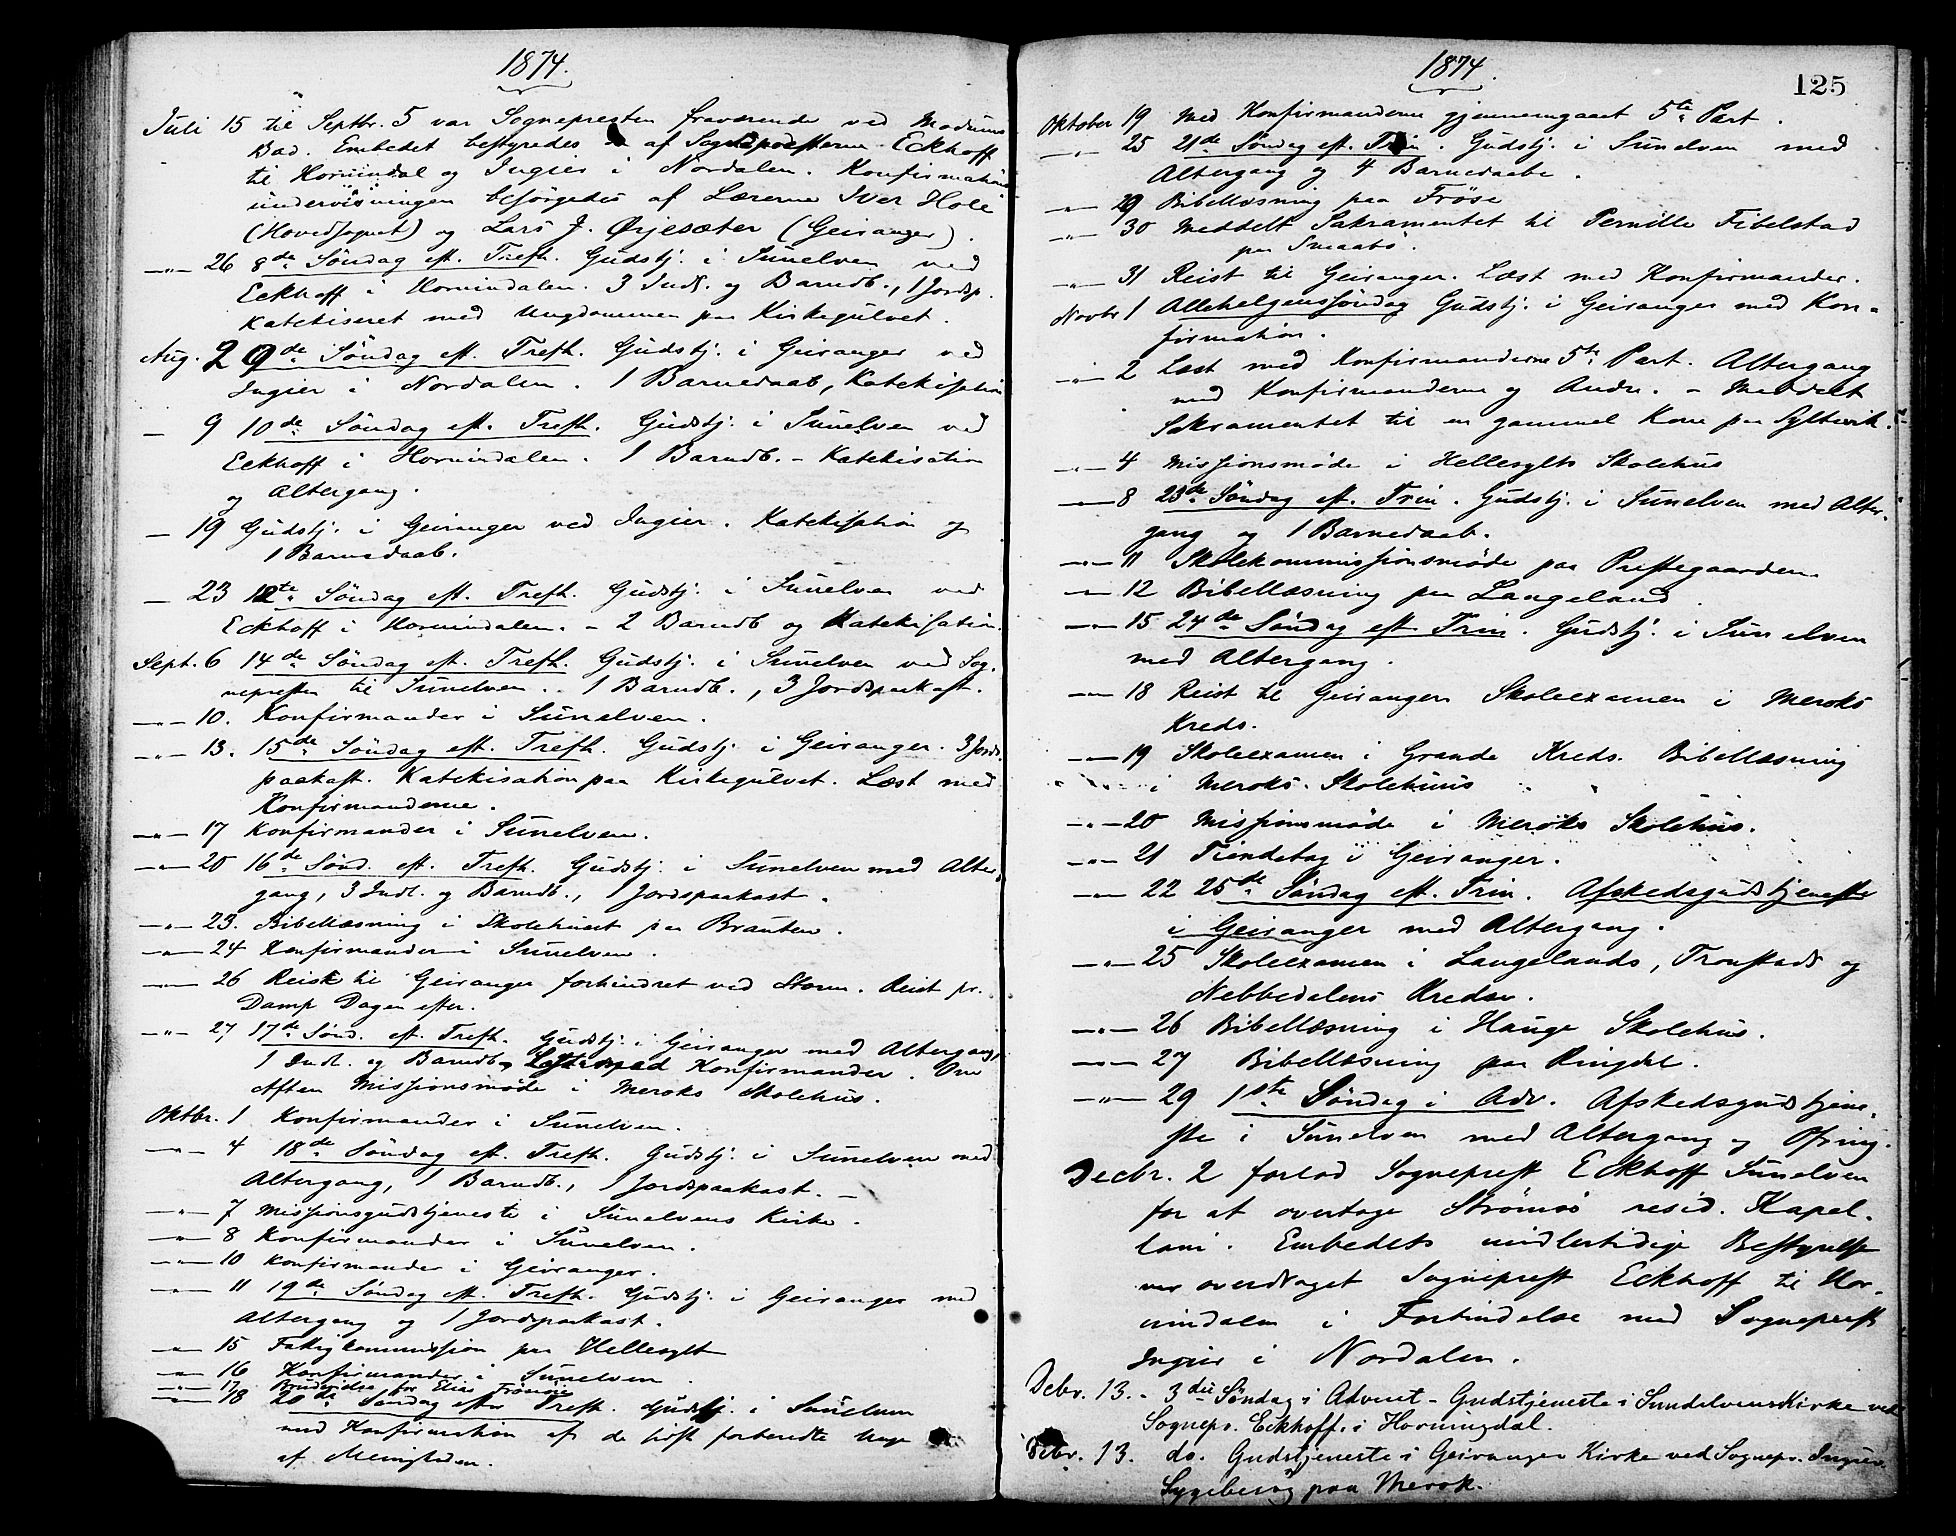 1874.
Juli 15 til Septbr. 5 var Sognepresten fraværende ved Modums
Bad. Embedet bestyredes af Sognepresterne Eckhoff
til Hornindal og Ingier i Nordalen. Konfirmations
undervisningen besørgedes af Lærerne Iver Hole
(Hovedsognet) og Lars J. Ørjesæter (Geiranger).
—"— 26 8de Søndag eft. Trefh. Gudstj. i Sunelven ved
Eckhoff i Hornindalen. 3 Indl. og Barndb., 1 Jordsp.
Katekiseret med Ungdommen paa Kirkegulvet.
Aug. 2 9de Søndag eft. Trefh. Gudstj. i Geiranger ved
Ingier i Nordalen. 1 Barnedaab, Katekisation
— 9 10de Søndag eft. Trefh. Gudstj. i Sunelven ved
Eckhoff i Hornindalen. 1 Barndb. – Katekisation
og Altergang.
— 19 Gudstj. i Geiranger ved Ingier. Katekisation og
1 Barnedaab.
— 23 12te Søndag eft. Trefh. Gudstj. i Sunelven ved
Eckhoff i Hornindalen. – 2 Barndb og Katekisation.
Sept. 6 14de Søndag eft. Trefh. Gudstj. i Sunelven ved Sog-
nepresten til Sunelven. 1 Barndb., 3 Jordspaakast.
—"— 10. Konfirmander i Sunelven.
—"— 13. 15de Søndag eft. Trefh. Gudstj. i Geiranger. 3 Jords-
paakast. Katekisation paa Kirkegulvet. Læst med
Konfirmanderne.
—"— 17 Konfirmander i Sunelven.
—"— 20 16de Sønd. eft. Trefh. Gudstj. i Sunelven med Alter-
gang, 3 Indl. og Barndb., 1 Jordspaakast.
—"— 23. Bibellæsning i Skolehuset paa Brauten.
—"— 24 Konfirmander i Sunelven.
—"— 26 Reise til Geiranger forhindret ved Storm. Reist pr.
Damp Dagen efter.
—"— 27 17de Sønd. eft. Trefh. Gudstj. i Geiranger med Altergang,
1 Indl. og Barndb. Læst med Konfirmander. Om
Aften Missionsmøde i Meroks Skolehus.
Oktbr. 1 Konfirmander i Sunelven.
—"— 4 18de Søndag eft. Trefh. Gudstj. i Sunelven med
Altergang, 1 Barndb., 1 Jordspaakast. –
—"— 7 Missionsgudstjeneste i Sunelvens Kirke.
—"— 8 Konfirmander i Sunelven.
—"— 10 Konfirmander i Geiranger.
—"— 11 19de Søndag eft. Trefh. Gudstj. i Geiranger med
Altergang og 1 Jordspaakast.
—"— 15 Fattigkommission paa Hellesylt
—"— 16 Konfirmander i Sunelven.
—"— 17 Brudevielse for Elias
—"— 18 20de Søndag efter Trefh. Gudstj. i Sunelven
med Konfirmation af de først forberedte Unge
af Menigheden.
1874.
125
Oktober 19 Med Konfirmanderne gjennemgaaet 5te Part.
—"— 25 21de Søndag eft. Trin. Gudstj. i Sunelven med
Altergang og 4 Barnedaabe.
—"— 29 Bibellæsning paa Frøse
—"— 30 Meddelt Sakramentet til Pernille Fibelstad
paa
—"— 31 Reist til Geiranger. Læst med Konfirmander.
Novbr 1 Allehelgenssøndag Gudstj. i Geiranger med Kon-
firmation.
—"— 2 Læst med Konfirmanderne 5te Part. Altergang
med Konfirmanderne og Andre. – Meddelt
Sakramentet til en gammel Kone paa Syltevik.
—"— 4 Missionsmøde i Hellesylts Skolehus
—"— 8 23de Søndag eft. Trin. Gudstj. i Sunelven med Alter-
gang og 1 Barnedaab.
—"— 11 Skolekommissionsmøde paa Prestegaarden.
—"— 12 Bibellæsning paa Langeland.
—"— 15 24de Søndag eft. Trin. Gudstj. i Sunelven
med Altergang.
—"— 18 Reist til Geiranger. Skoleexamen i Meroks
Kreds.
—"— 19 Skoleexamen i Grande Kreds. Bibellæsning
i Meroks Skolehuus
—"— 20 Missionsmøde i Meroks Skolehus.
—"— 21 Tiendetag i Geiranger.
—"— 22 25de Søndag eft. Trin. Afskedsgudstjeneste
i Geiranger med Altergang.
—"— 25 Skoleexamen i Langelands, Tronstads og
Nebbedalens Kredse.
—"— 26 Bibellæsning i Hauge Skolehus.
—"— 27 Bibellæsning paa Ringdal.
—"— 29 1ste Søndag i Adv. Afskedsgudstjene-
ste i Sunelven med Altergang og Ofring.
Decbr. 2 forlod Sogneprest Eckhoff Sunelven
for at overtage Strømsø resid. Kapel-
lani. Embedets midlertidige Bestyrelse
var overdraget Sogneprest Eckhoff til Hor-
nindalen i Forbindelse med Sogneprest
Ingier i Nordalen.
Debr. 13. – 3die Søndag i Advent – Gudstjeneste i Sundelvens Kirke ved
Sognepr. Eckhoff i Horningdal.
Debr. 13. do. Gudstjeneste i Geiranger Kirke ved Sognepr. Ingier.
Sygebesøg paa Merok.